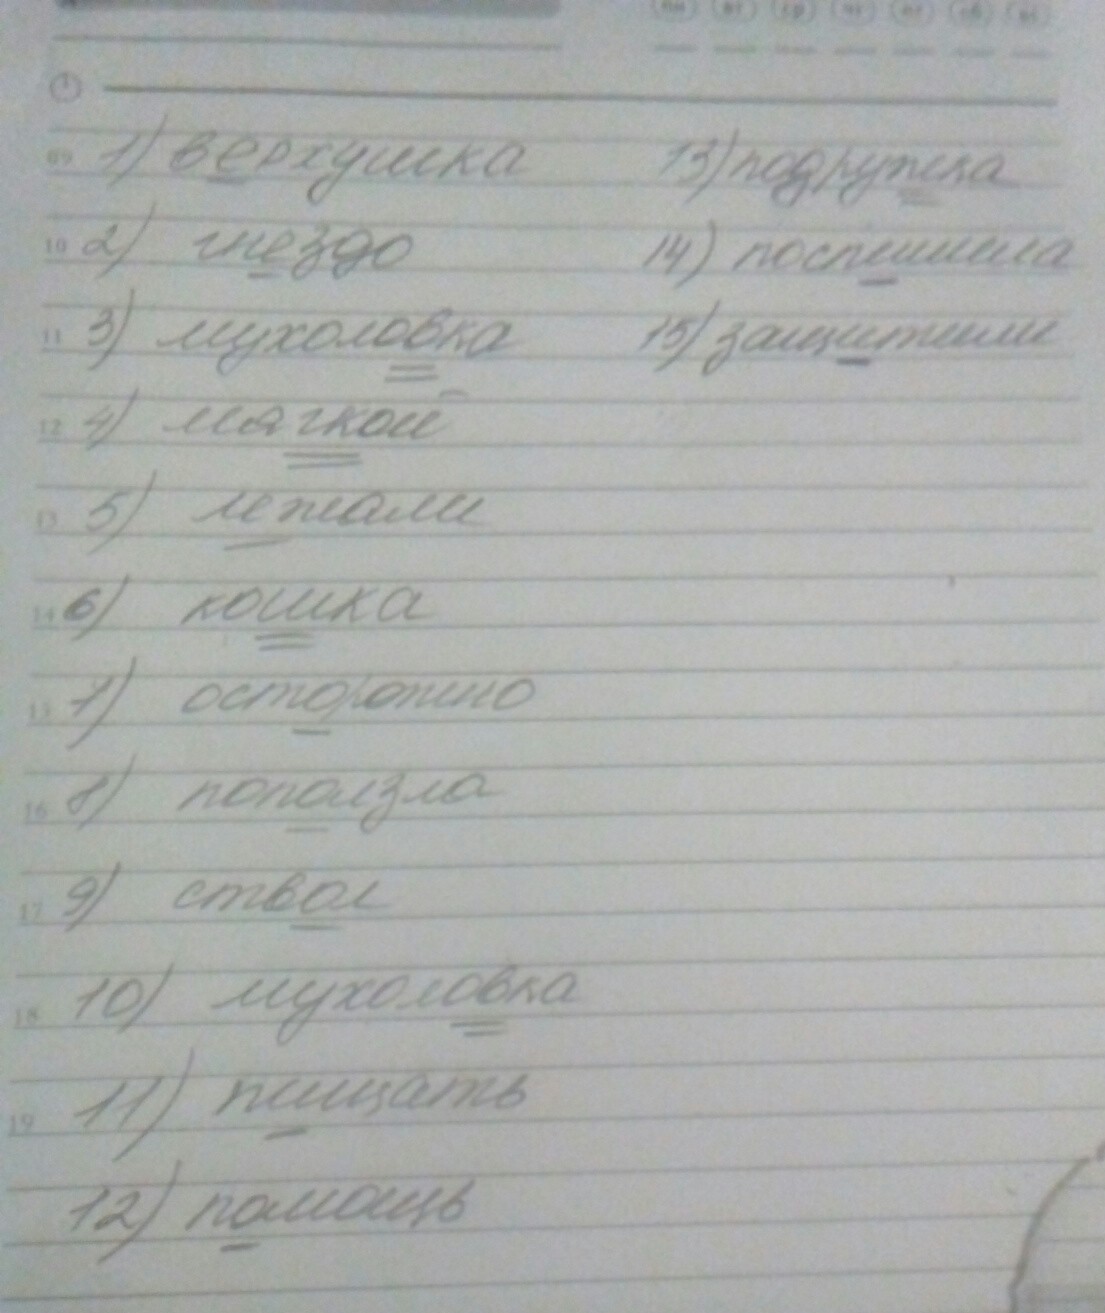 пн вт ср чт пт сб вс
09 1) верхушка
10 2) гнездо
11 3) мухоловка
12 4) мягкой
13 5) лежали
14 6) кошка
15 7) осторожно
16 8) поползла
17 9) ствол
18 10) мухоловка
19 11) пищать
12) помощь
13) подружка
14) поспешила
15) защитили